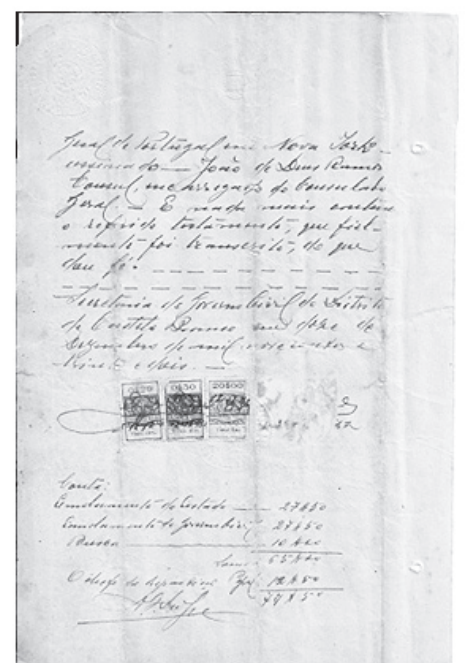 Geral de Portugal em Nova York
assinado — João de Deus Ramos
Consul encarregado do Consulado
Geral — E nada mais contem
o referido testamento, que fiel-
mente foi transcrito, do que
dou fé.
Secretaria do Governo Civil do Distrito
de Castelo Branco em doze de
Dezembro de mil novecentos e
trinta e dois. —
0$50 20$00
Conta:
Emolumento do Estado — 27$50
Emolumento do Governo Civil 27$50
Busca 10$00
Soma
O chefe da